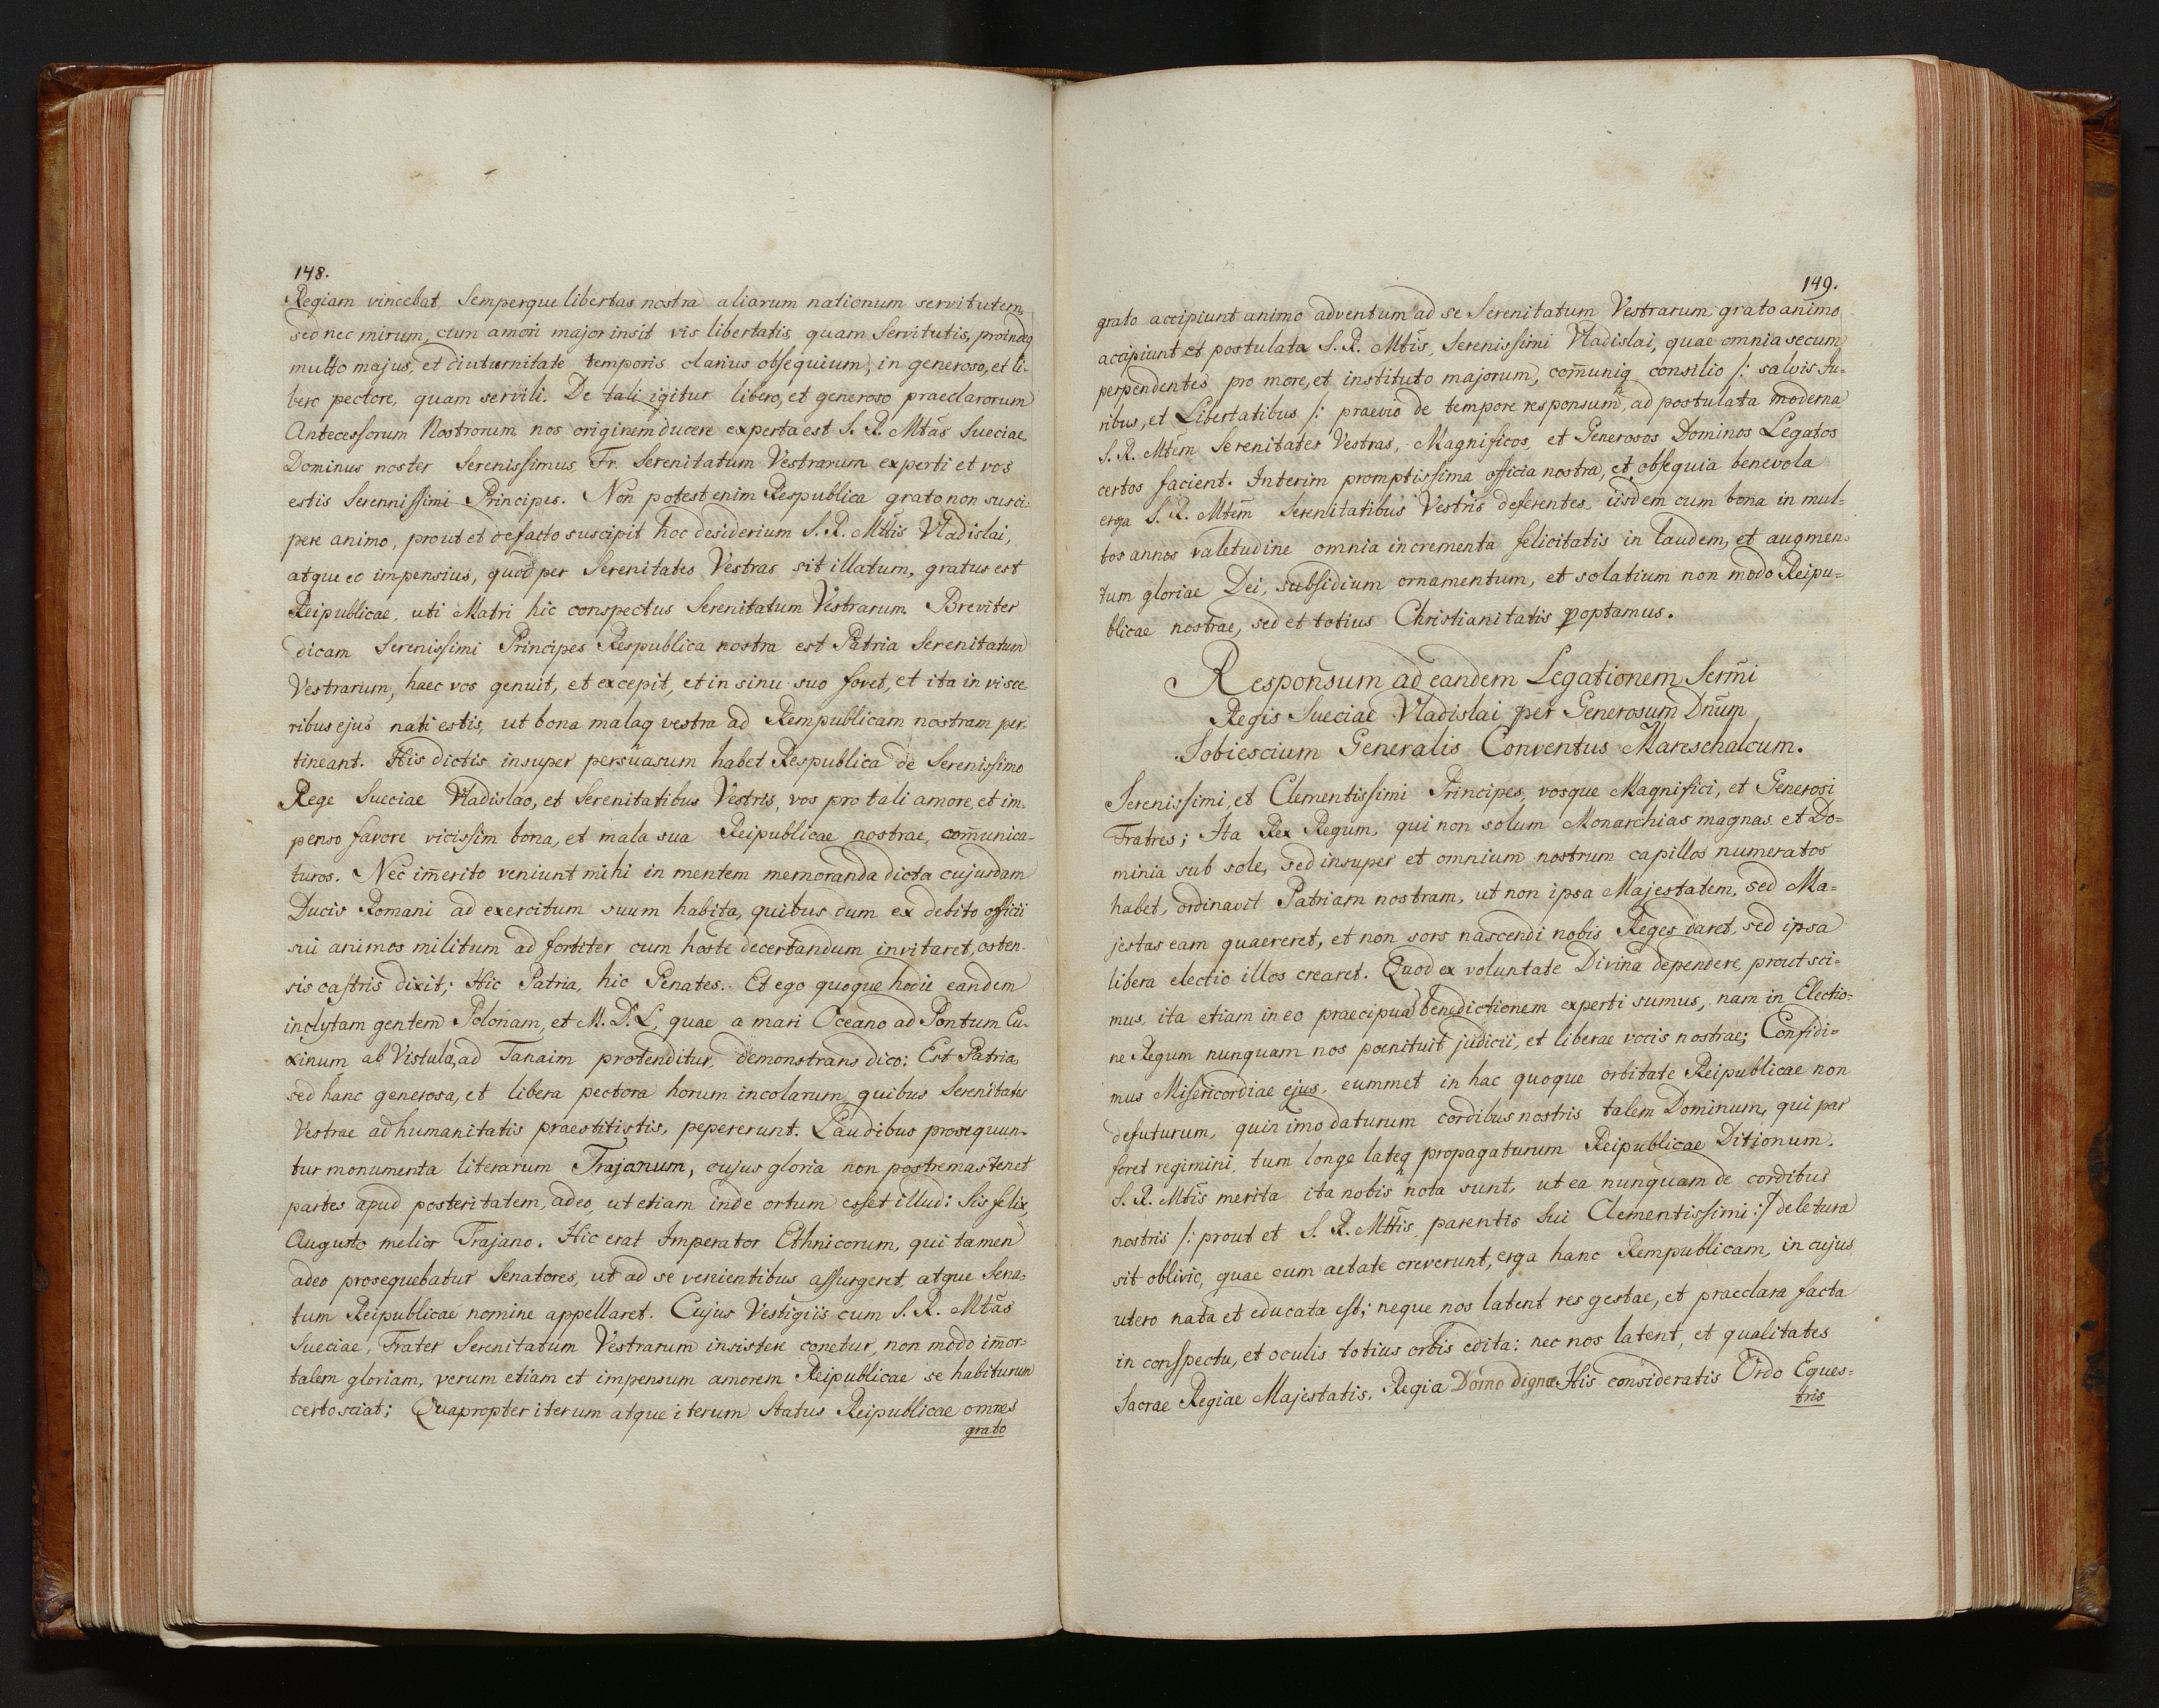 148.
Regiam vincebat. Semperque libertas nostra aliarum nationum servitutem,
sed nec mirum, cum amori major insit vis libertatis, quam Servitutis, proindeq
multo majus, et diuturnitate temporis clarius obsequium, in generoso, et li-
bero pectore, quam servili. De tali igitur libero, et generoso praeclarorum
Antecessorum Nostrorum nos originem ducere experta est S. R. Mtas Sueciae
Dominus noster Serenissimus Fr. Serenitatum Vestrarum experti et vos
estis Serennissimi Principes. Non potest enim Respublica grato non susci-
pere animo, prout et de facto suscipit hoc desiderium S. R. Mttis Vladislai,
atque eo impensius, quod per Serenitates Vestras sit illatum, gratus est
Reipublicae, uti Matri hic conspectus Serenitatum Vestrarum. Breviter
dicam Serenissimi Principes Respublica nostra est Patria Serenitatum
Vestrarum, haec vos genuit, et excepit, et in sinu suo fovet, et ita in visce-
ribus ejus nati estis, ut bona malaq vestra ad Rempublicam nostram per-
tineant. His dictis insuper persuasum habet Respublica de Serenissimo
Rege Sueciae Vladislao, et Serenitatibus Vestris, vos pro tali amore, et im-
penso favore vicissim bona, et mala sua Reipublicae nostrae com̄unica-
turos. Nec im̄erito veniunt mihi in mentem memoranda dicta cujusdam
Ducis Romani ad exercitum suum habita, quibus dum ex debito officii
sui animos militum ad fortiter cum hoste decertandum invitaret, osten-
sis castris dixit; Hic Patria, hic Penates. Et ego quoque hodie eandem
inclytam gentem Polonam, et M. D. L. quae a mari Oceano ad Pontum Eu-
xinum ab Vistula, ad Tanaim protenditur, demonstrans dico: Est Patria,
sed hanc generosa, et libera pectora horum incolarum, quibus Serenitates
Vestrae ad humanitatis praestitistis, pepererunt. Laudibus prosequun-
tur monumenta literarum Trajanum, cujus gloria non postremas tenet
partes apud posteritatem, adeo, ut etiam inde ortum esset illud: Sis felix,
Augusto melior Trajano. Hic erat Imperator Ethnicorum, qui tamen
adeo prosequebatur Senatores, ut ad se venientibus assurgeret, atque Sena-
tum Reipublicae nomine appellaret. Cujus Vestigiis cum S. R. Mtas
Sueciae, Frater Serenitatum Vestrarum insistere conetur, non modo im̄or-
talem gloriam, verum etiam et impensum amorem Reipublicae se habiturum
certo sciat; Quapropter iterum atque iterum Status Reipublicae omnes
grato
149.
grato accipiunt animo adventum ad se Serenitatum Vestrarum grato animo
accipiunt et postulata S. R. Mtis, Serenissimi Vladislai, quae omnia secum
perpendentes pro more, et instituto majorum, com̄uniq consilio /: salvis Iu-
ribus, et Libertatibus /: praevio de tempore responsum, ad postulata moderna
S. R. Mtem Serenitates Vestras, Magnificos, et Generosos Dominos Legatos
certos facient. Interim promptissima officia nostra, et obsequia benevola
erga S. R. Mtem Serenitatibus Vestris deferentes, iisdem cum bona in mul-
tos annos valetudine omnia incrementa felicitatis in laudem, et augmen-
tum gloriae Dei, subsidium ornamentum, et solatium non modo Reipu-
blicae nostrae, sed et totius Christianitatis poptamus.
Responsum ad eandem Legationem Sermi
Regis Sueciae Vladislai per Generosum Dnum
Sobiescium Generalis Conventus Mareschalcum.
Serenissimi, et Clementissimi Principes, vosque Magnifici, et Generosi
Fratres; Ita Rex Regum, qui non solum Monarchias magnas et Do-
minia sub sole, sed insuper et omnium nostrum capillos numeratos
habet, ordinavit Patriam nostram, ut non ipsa Majestatem, sed Ma-
jestas eam quaereret, et non sors nascendi nobis Reges daret, sed ipsa
libera electio illos crearet. Quod ex voluntate Divina dependere, prout sci-
mus, ita etiam in eo praecipua benedictionem experti sumus, nam in Electio-
ne Regum nunquam nos poenituit judicii, et liberae vocis nostrae; Confidi-
mus Misericordiae ejus, eummet in hac quoque orbitate Reipublicae non
defuturum, quin imo daturum cordibus nostris talem Dominum, qui par
foret regimini, tum longe lateq propagaturum Reipublicae Ditionum.
S. R. Mtis merita ita nobis nota sunt, ut ea nunquam de cordibus
nostris /: prout et S. R. Mttis parentis Sui Clementissimi :/ deletura
sit oblivio, quae cum aetate creverunt, erga hanc Rempublicam, in cujus
utero nata et educata est; neque nos latent res gestae, et praeclara facta
in conspectu, et oculis totius orbis edita: nec nos latent, et qualitates
Sacrae Regiae Majestatis, Regia Domo dignæ His consideratis Ordo Eques-
tris